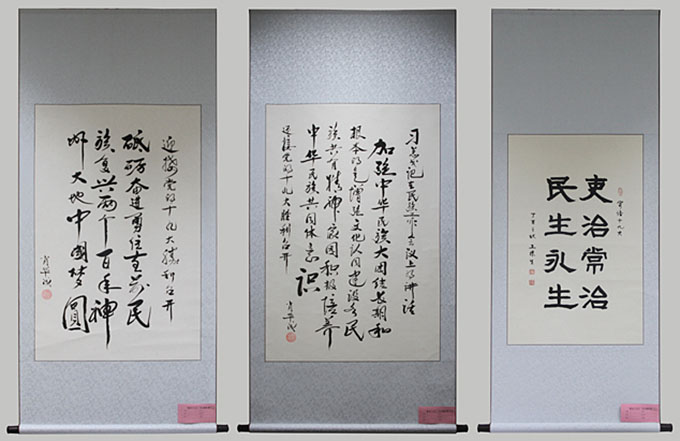 迎接党的十九大胜利召开
砥砺奋进勇往直前民
族复兴两个百年神
州大地中國梦圆
习总书记在民族工作会议上的讲话
加强中华民族大团结长期和
根本的是增强文化认同建设各民
族共有精神家园积极培养
中华民族共同体意识
迎接党的十九大胜利召开
吏治常治
民生永生